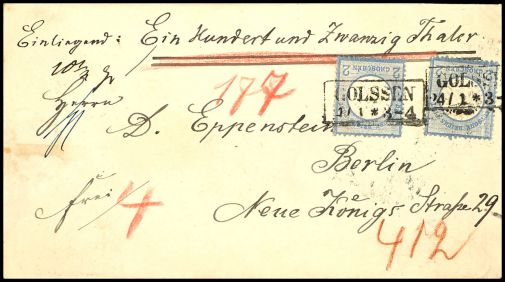 Einliegend: Ein Hundert und Zwanzig Thaler.
177
2 GROSCHEN 2
GOLSSEN
* 3-4
GOLSSEN
24/1 * 3-
Herrn
D. Eppenstein
Berlin
frei 4
Neue Königs Straße 29
412